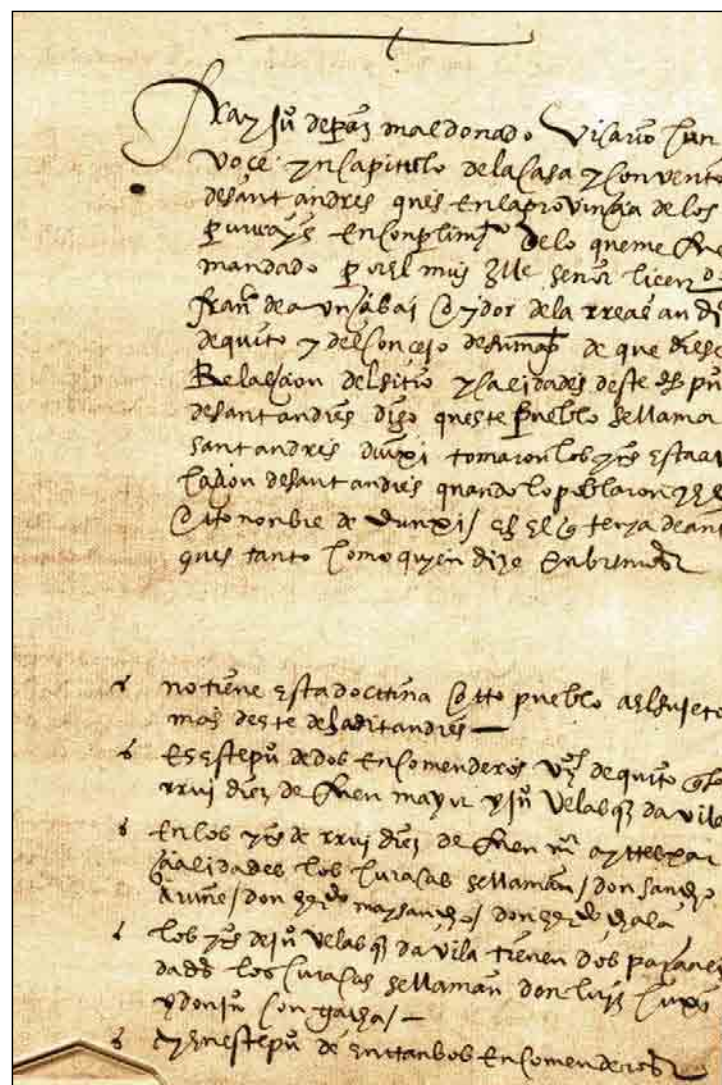 fray juº de paz maldonado vicario con
voce yn capitulo de la casa y convento
de sant andres ques en la provincia de los
puruayes en conplimyº de lo que me fue
mandado por el muy ylle señor licendo
franco de auncibai oydor de la rreal audi
de quito y del consejo de su magt de que diese
Relaçion del sitio y calidades deste dho puº
de sant andres digo queste pueblo se llama
sant andres dunxi tomaron los yºs esta
de sant andres quando lo poblaron
otro nonbre de dunxi/ es el q tenya de ant
ques tanto como quyen dize
no tiene esta doctrina otro pueblo a el sujeto
mas deste de sant andres —
es este puº de dos encomenderos vºs de quito
rrui diez de fuen mayor y juº velasqz davila
en los yºs de rrui diez de fuen mor ay tres par
cialidades los curacas se llaman/ don sancho
/don herdo maysancho/ don herdo chala
los yºs de juº velasqz davila tienen dos
dades los curacas se llaman don luys
y don juº con gacha/ —
ay en este puº de entranbos encomenderos